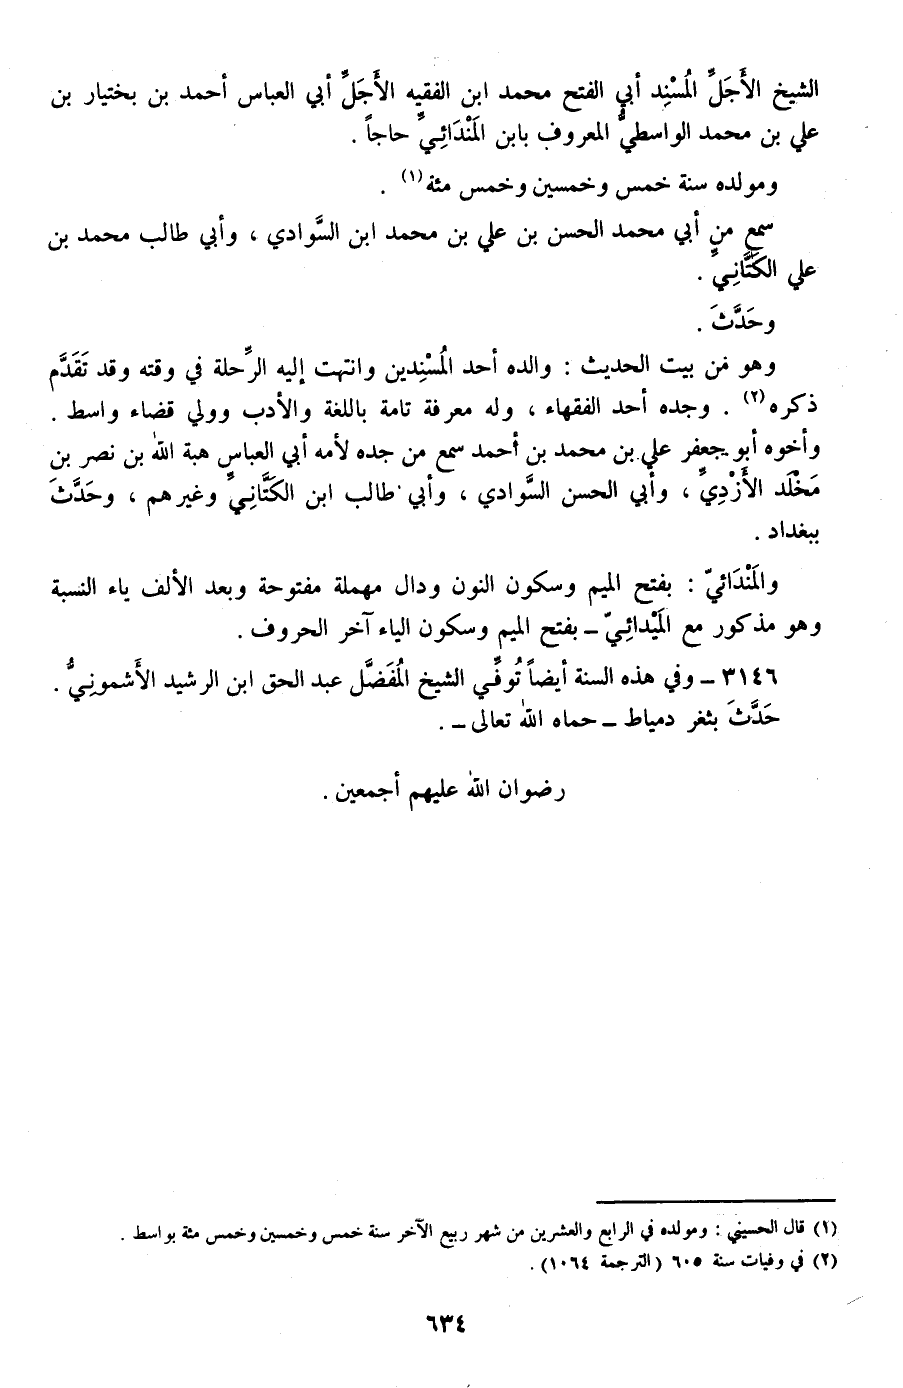 الشيخ الأَجَلِّ المُسْنِد أبي الفتح محمد ابن الفقيه الأَجَلِّ أبي العباس أحمد بن بختيار بن
علي بن محمد الواسطيُّ المعروف بابن المَنْدَائِيِّ حاجاً .
ومولده سنة خمس وخمسين وخمس مئة(١) .
سمع من أبي محمد الحسن بن علي بن محمد ابن السَّوادي ، وأبي طالب محمد بن
علي الكَتَّانِيِّ .
وحَدَّثَ .
وهو من بيت الحديث : والده أحد المُسْنِدين وانتهت إليه الرِّحلة في وقته وقد تَقَدَّم
ذكره(٢) . وجده أحد الفقهاء ، وله معرفة تامة باللغة والأدب وولي قضاء واسط .
وأخوه أبو جعفر علي بن محمد بن أحمد سمع من جده لأمه أبي العباس هبة الله بن نصر بن
مَخْلَد الأَزْدِيِّ ، وأبي الحسن السَّوادي ، وأبي طالب ابن الكَتَّانِيِّ وغيرهم ، وحَدَّثَ
ببغداد .
والمَنْدَائيّ : بفتح الميم وسكون النون ودال مهملة مفتوحة وبعد الألف ياء النسبة
وهو مذكور مع المَيْدائِيّ ــ بفتح الميم وسكون الياء آخر الحروف .
٣١٤٦ ــ وفي هذه السنة أيضاً تُوفِّي الشيخ المُفَضَّل عبد الحق ابن الرشيد الأَشمونِيُّ .
حَدَّثَ بثغر دمياط ــ حماه الله تعالى ــ .
رضوان الله عليهم أجمعين .
(١) قال الحسيني : ومولده في الرابع والعشرين من شهر ربيع الآخر سنة خمس وخمسين وخمس مئة بواسط .
(٢) في وفيات سنة ٦٠٥ (الترجمة ١٠٦٤) .
٦٣٤